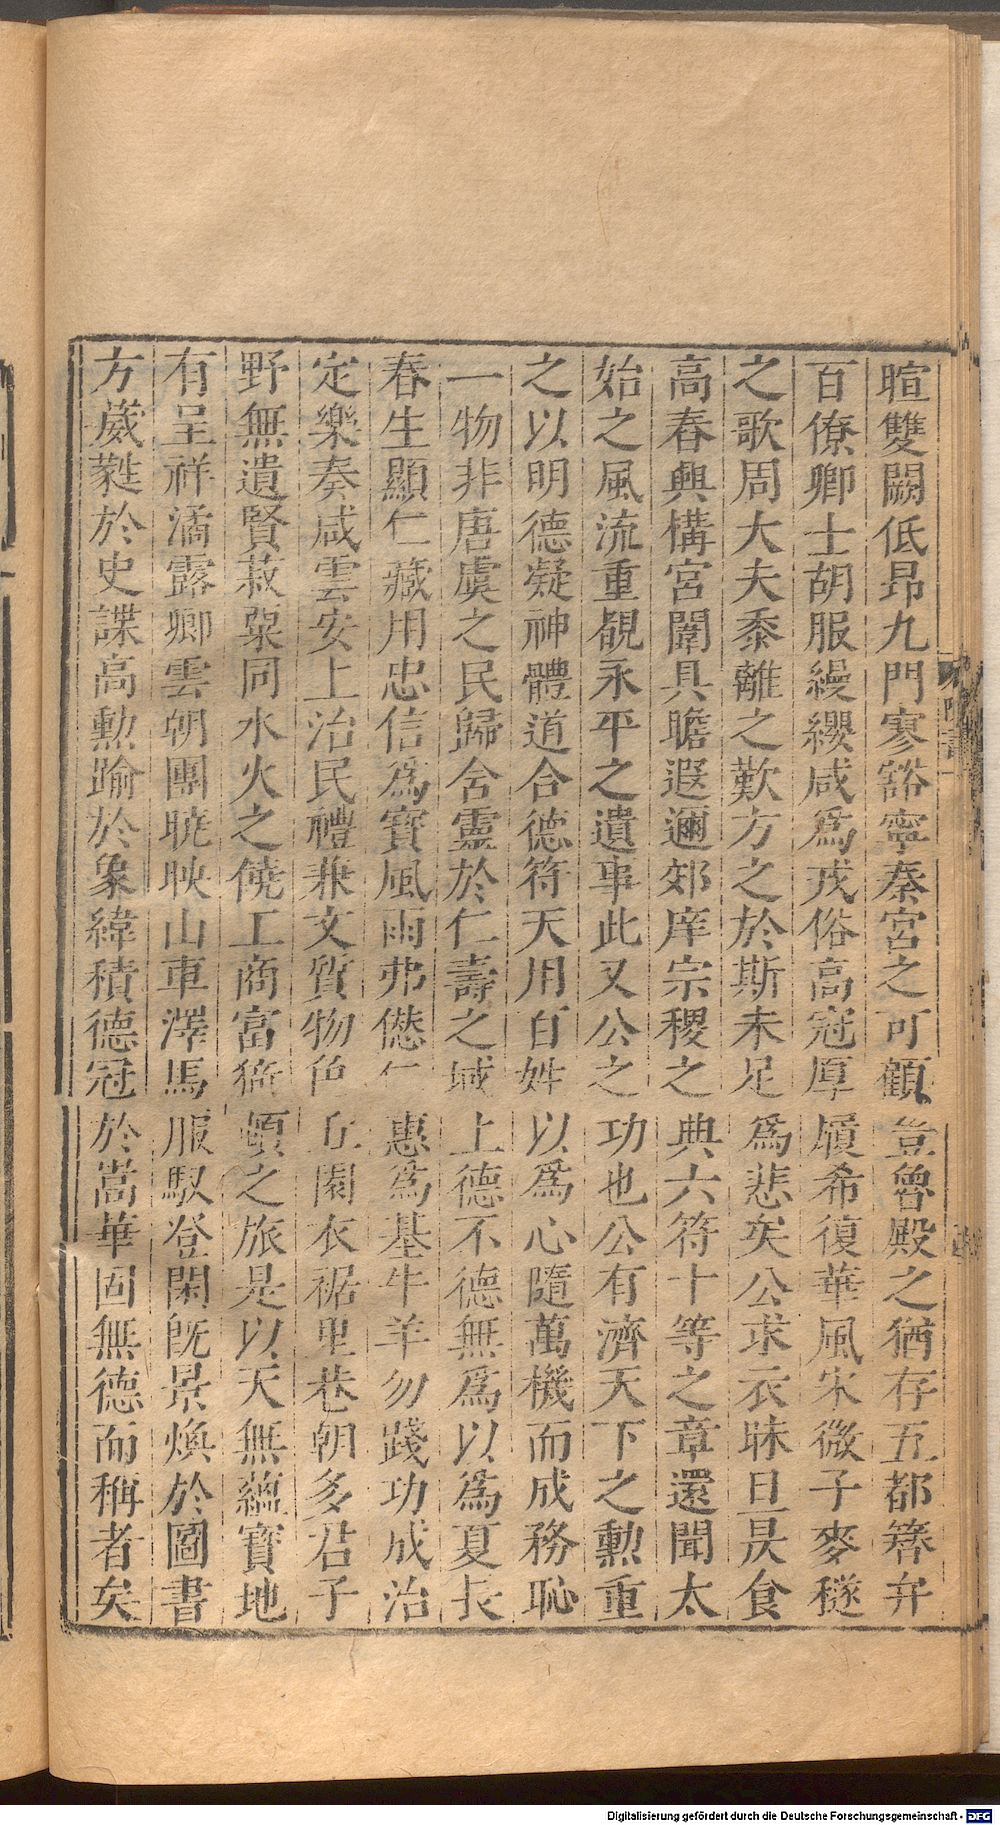 暄雙闕低昂九門寥豁寧秦宮之可顧豈魯殿之猶存五都簪弁
百僚卿士胡服縵纓咸爲戎俗高冠厚屨希復華風宋微子麥穟
之歌周大夫黍離之歎方之於斯未足爲悲矣公求衣昧旦昃食
高舂興構宮闈具瞻遐邇郊庠宗稷之典六符十等之章還聞太
始之風流重覩永平之遺事此又公之功也公有濟天下之勳重
之以明德凝神體道合德符天用百姓以爲心隨萬機而成務恥
一物非唐虞之民歸含靈於仁壽之域上德不德無爲以爲夏長
春生顯仁藏用忠信爲寶風雨弗僽仁惠爲基牛羊勿踐功成治
定樂奏咸雲安上治民禮兼文質物色丘園衣裾里巷朝多君子
野無遺賢菽粟同水火之饒工商富猗頓之旅是以天無蘊寶地
有呈祥潏露卿雲朝團曉映山車澤馬服馭登閑旣景煥於圖書
方葳蕤於史諜高勳踰於象緯積德冠於嵩華固無德而稱者矣
Digitalisierung gefördert durch die Deutsche Forschungsgemeinschaft - DFG